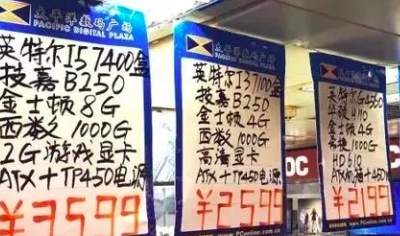 太平洋数码广场
PACIFIC DIGITAL PLAZA
英特尔I57400盒
技嘉B250
金士顿8G
西数1000G
2G游戏显卡
ATX+TP450电源
¥3599
太平洋数码广场
PACIFIC DIGITAL PLAZA
英特尔I37100盒
技嘉B250
金士顿4G
西数1000G
高清显卡
ATX+TP450电源
¥2599
www.PConline.com.cn
太平洋数码广场
PACIFIC DIGITAL PLAZA
英特尔G4560
H110
金士顿4G
希捷1000G
HD610
¥2199
www.PConline.com.cn
OC